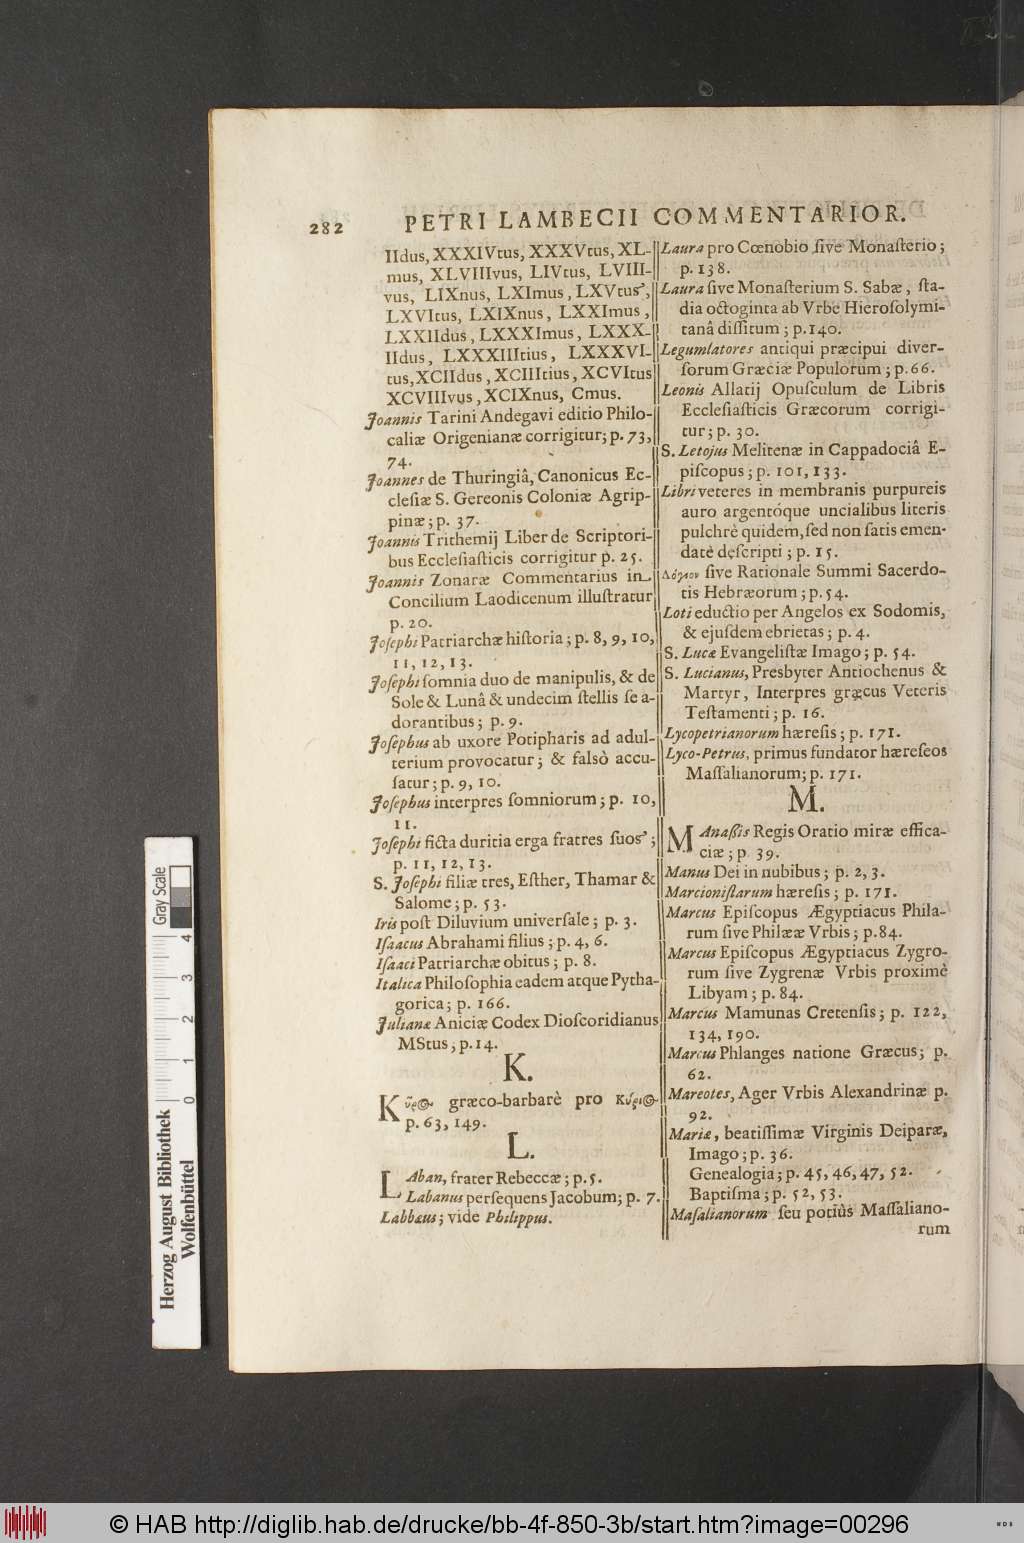 282 PETRI LAMBECII COMMENTARIOR.
IIdus, XXXIVtus, XXXVtus, XL-
mus, XLVIIIvus, LIVtus, LVIII-
vus, LIXnus, LXImus, LXVtus,
LXVItus, LXIXnus, LXXImus,
LXXIIdus, LXXXImus, LXXX-
IIdus, LXXXIIItius, LXXXVI-
tus, XCIIdus, XCIIItius, XCVItus
XCVIIIvus, XCIXnus, Cmus.
Joannis Tarini Andegavi editio Philo-
caliæ Origenianæ corrigitur; p. 73,
74.
Joannes de Thuringiâ, Canonicus Ec-
clesiæ S. Gereonis Coloniæ Agrip-
pinæ; p. 37.
Joannis Trithemij Liber de Scriptori-
bus Ecclesiasticis corrigitur p. 25.
Joannis Zonaræ Commentarius in
Concilium Laodicenum illustratur
p. 20.
Josephi Patriarchæ historia; p. 8, 9, 10,
11, 12, 13.
Josephi somnia duo de manipulis, & de
Sole & Lunâ & undecim stellis se a-
dorantibus; p. 9.
Josephus ab uxore Potipharis ad adul-
terium provocatur; & falsò accu-
satur; p. 9, 10.
Josephus interpres somniorum; p. 10,
11.
Josephi ficta duritia erga fratres suos;
p. 11, 12, 13.
S. Josephi filiæ tres, Esther, Thamar &
Salome; p. 53.
Iris post Diluvium universale; p. 3.
Isaacus Abrahami filius; p. 4, 6.
Isaaci Patriarchæ obitus; p. 8.
Italica Philosophia eadem atque Pytha-
gorica; p. 166.
Julianæ Aniciæ Codex Dioscoridianus
MStus; p. 14.
K.
Κῦρος græco-barbarè pro Κύριος
p. 63, 149.
L.
LAban, frater Rebeccæ; p. 5.
Labanus persequens Jacobum; p. 7.
Labbæus; vide Philippus.
Laura pro Cœnobio sive Monasterio;
p. 138.
Laura sive Monasterium S. Sabæ, sta-
dia octoginta ab Vrbe Hierosolymi-
tanâ dissitum; p. 140.
Legumlatores antiqui præcipui diver-
sorum Græciæ Populorum; p. 66.
Leonis Allatij Opusculum de Libris
Ecclesiasticis Græcorum corrigi-
tur; p. 30.
S. Letojus Melitenæ in Cappadociâ E-
piscopus; p. 101, 133.
Libri veteres in membranis purpureis
auro argentóque uncialibus literis
pulchrè quidem, sed non satis emen-
datè descripti; p. 15.
Λόγιον sive Rationale Summi Sacerdo-
tis Hebræorum; p. 54.
Loti eductio per Angelos ex Sodomis,
& ejusdem ebrietas; p. 4.
S. Lucæ Evangelistæ Imago; p. 54.
S. Lucianus, Presbyter Antiochenus &
Martyr, Interpres græcus Veteris
Testamenti; p. 16.
Lycopetrianorum hæresis; p. 171.
Lyco-Petrus, primus fundator hæreseos
Massalianorum; p. 171.
M.
MAnaßis Regis Oratio miræ effica-
ciæ; p. 39.
Manus Dei in nubibus; p. 2, 3.
Marcionistarum hæresis; p. 171.
Marcus Episcopus Ægyptiacus Phila-
rum sive Philææ Vrbis; p. 84.
Marcus Episcopus Ægyptiacus Zygro-
rum sive Zygrenæ Vrbis proximè
Libyam; p. 84.
Marcus Mamunas Cretensis; p. 122,
134, 190.
Marcus Phlanges natione Græcus; p.
62.
Mareotes, Ager Vrbis Alexandrinæ p.
92.
Mariæ, beatissimæ Virginis Deiparæ,
Imago; p. 36.
Genealogia; p. 45, 46, 47, 52.
Baptisma; p. 52, 53.
Masalianorum seu potiùs Massaliano-
rum
Gray Scale
0 1 2 3 4
Herzog August Bibliothek
Wolfenbüttel
© HAB http://diglib.hab.de/drucke/bb-4f-850-3b/start.htm?image=00296